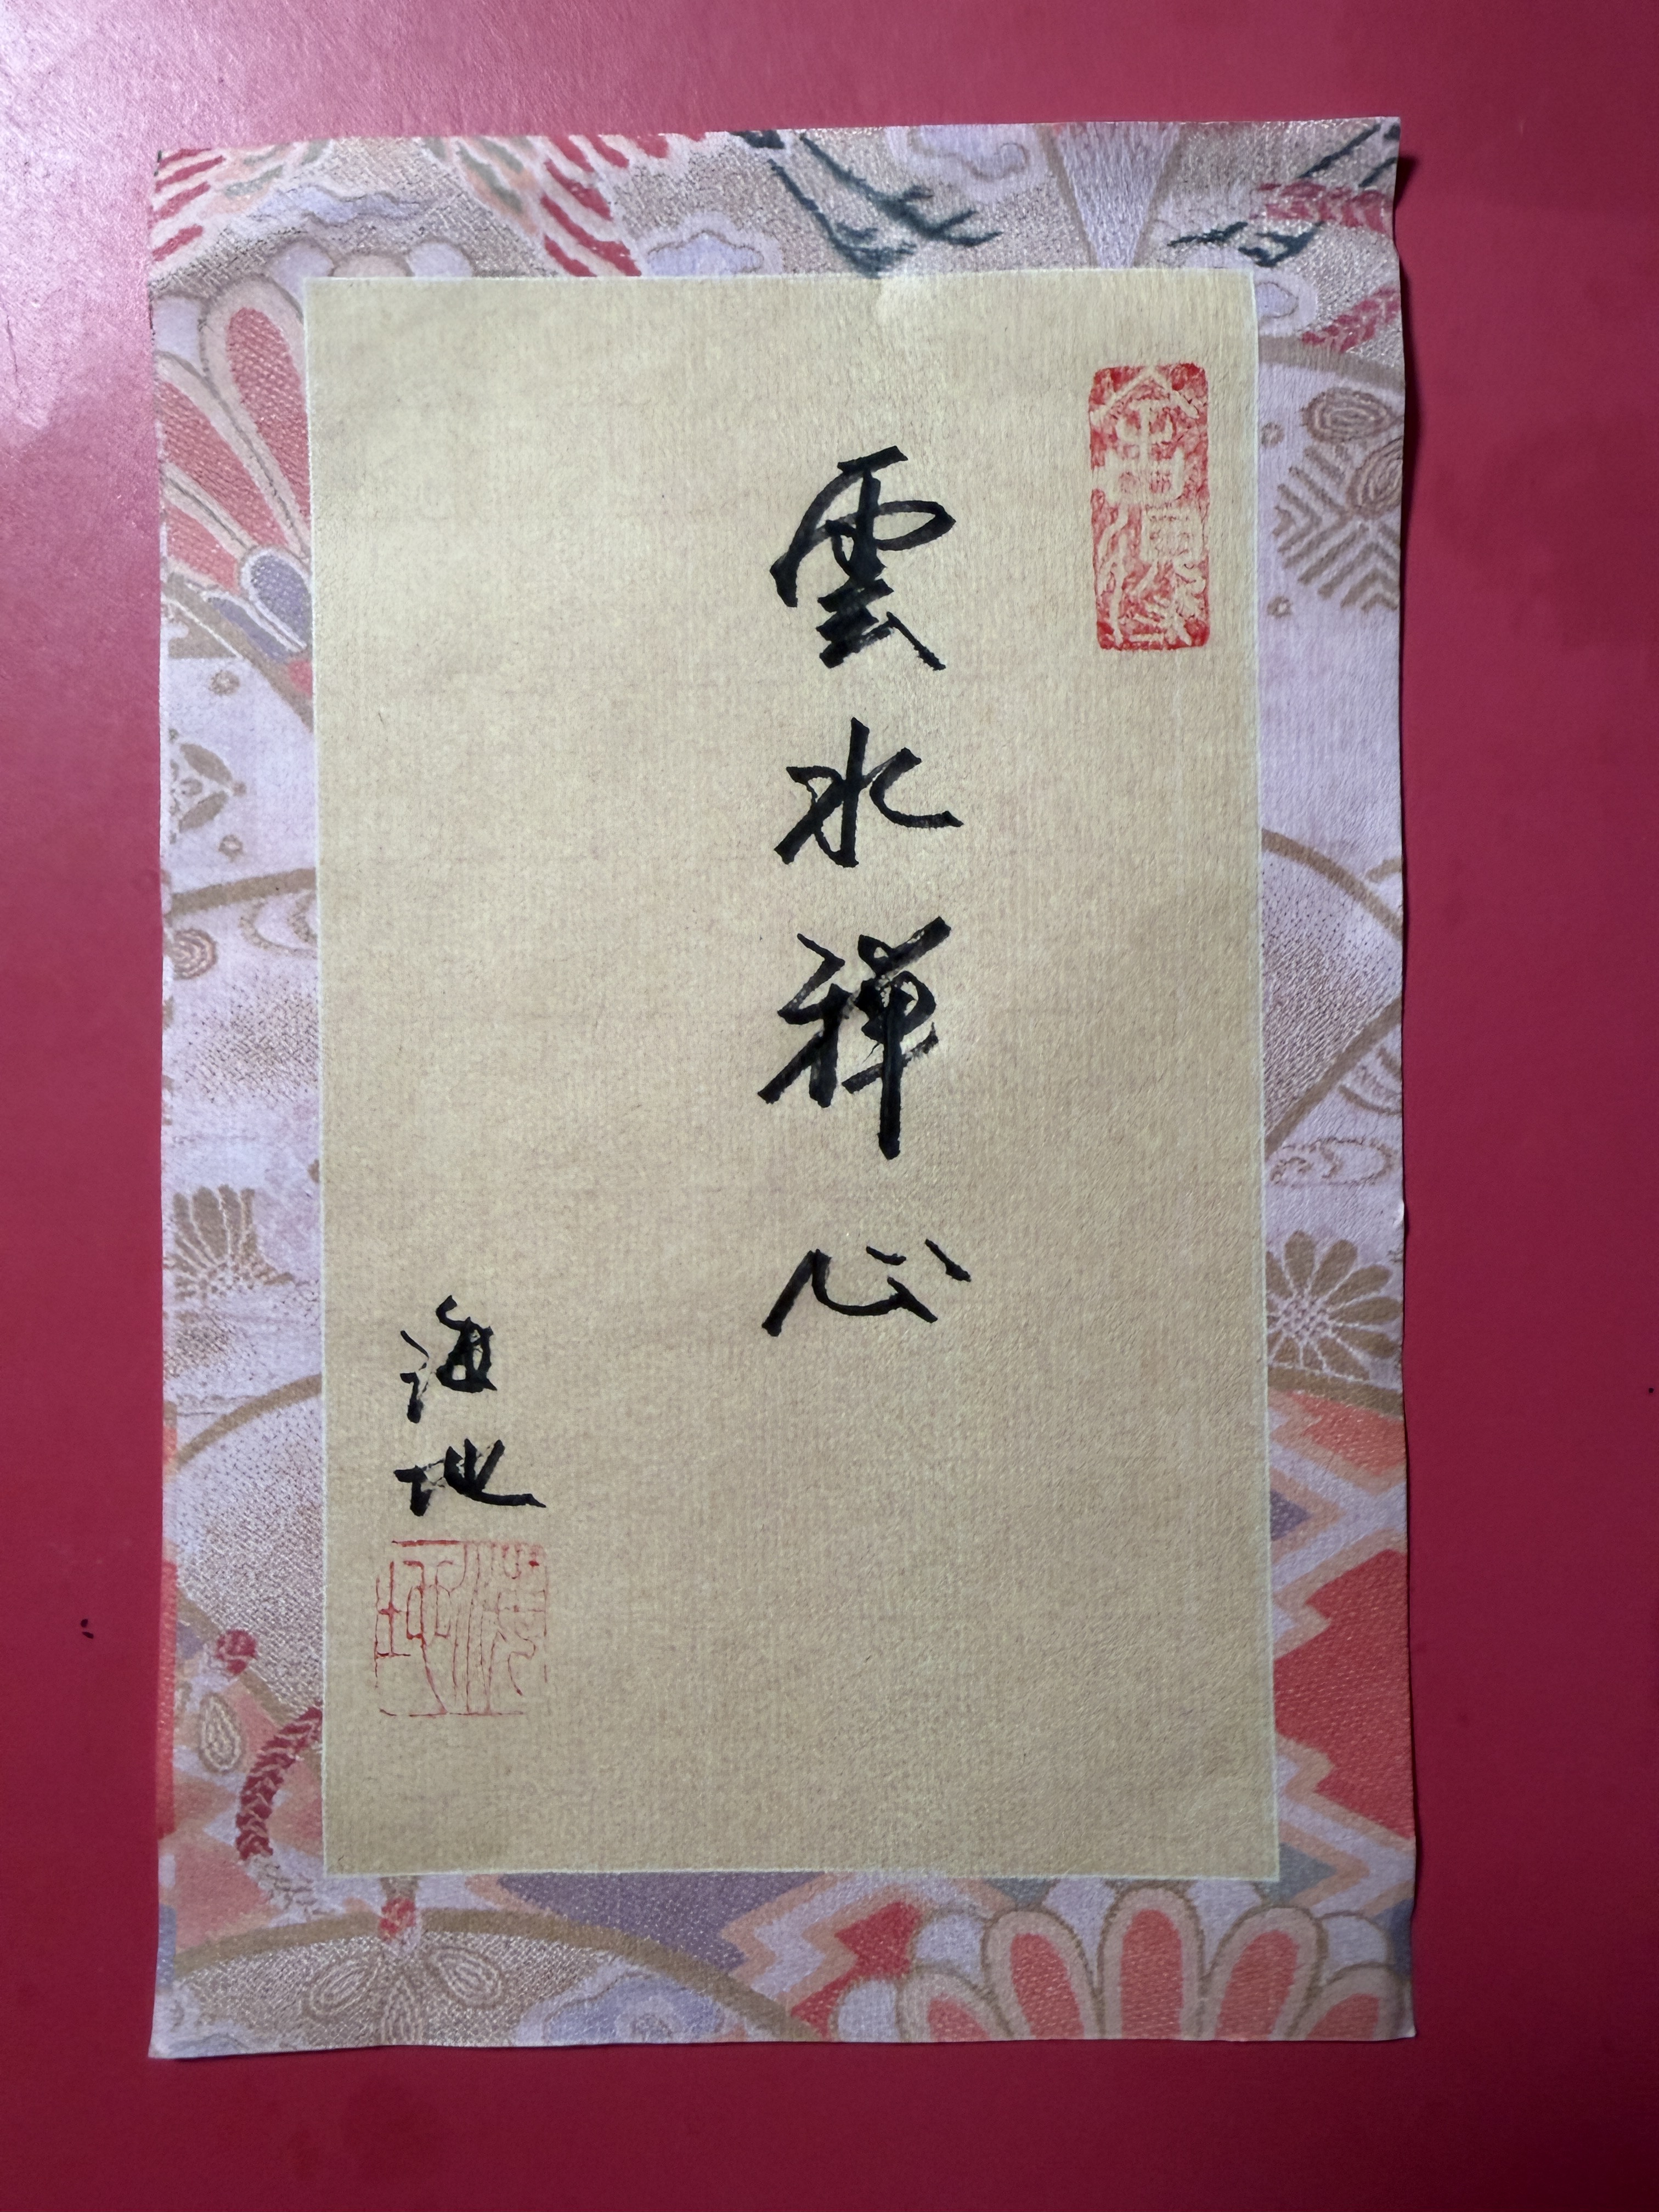 雲水禪心
海地